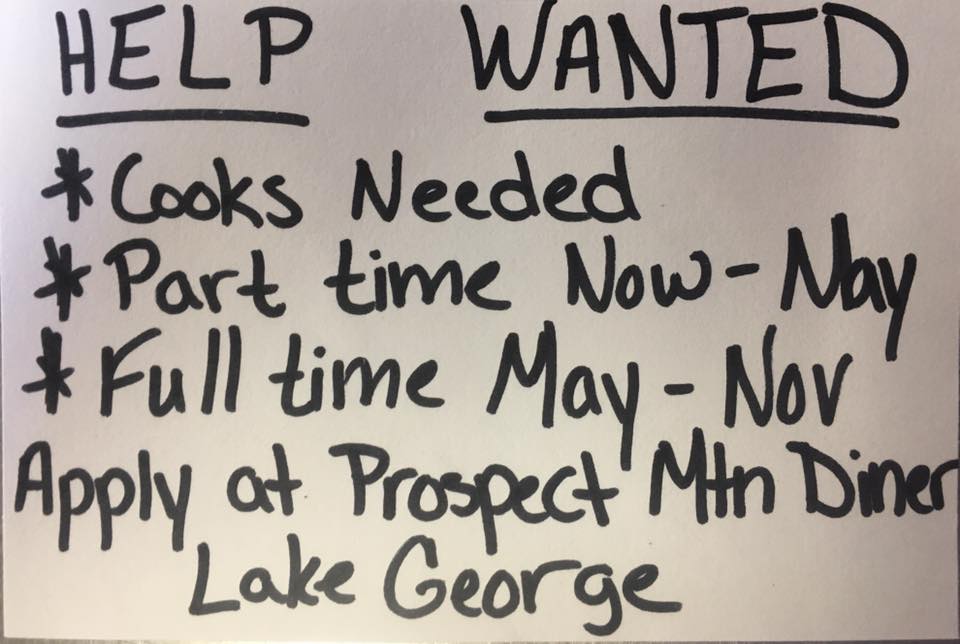 HELP WANTED
* Cooks Needed
* Part time Now - May
* Full time May - Nov
Apply at Prospect Mtn Diner
Lake George